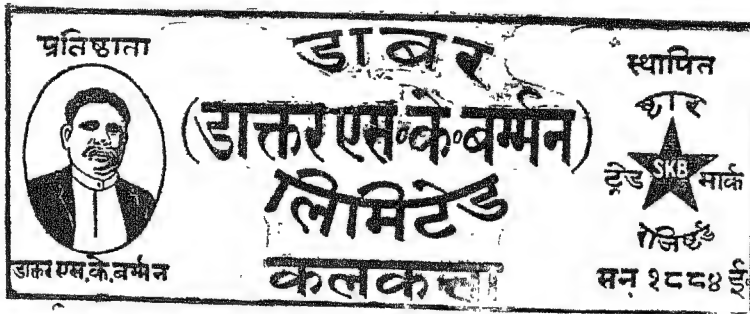 प्रतिष्ठाता
डाक्तर एस.के.बर्म्मन
डाबर
(डाक्तर एस॰के॰बर्म्मन)
लिमिटेड
कलकत्ता
स्थापित
ष्टार
SKB
ट्रेड मार्क
रेजिष्टर्ड
सन् १८८४ ई॰